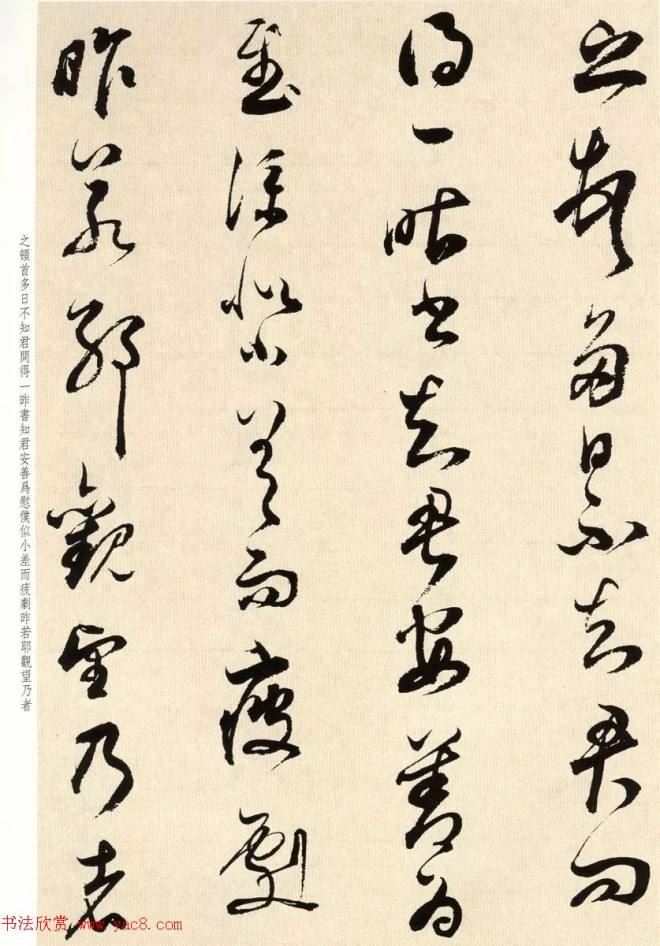 之頓首多日不知君問
得一昨書知君安善為
慰僕似小差而疲劇
昨若耶觀望乃者
之頓首多日不知君問得一昨書知君安善爲慰僕似小差而疲劇昨若耶觀望乃者
书法欣赏 www.yac8.com